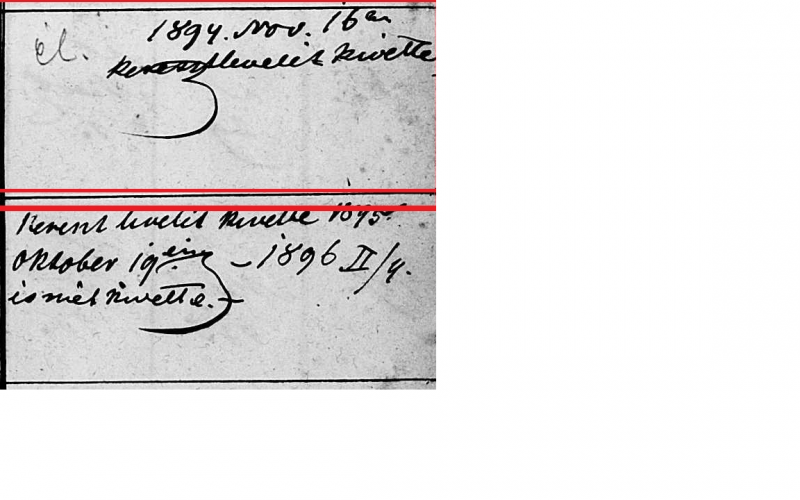 él.
1894. Nov. 16án
Keresztlevelit kivette
Kereszt livelit kivette 1895.
Oktober 19én – 1896 II/4.
ismét kivette. –